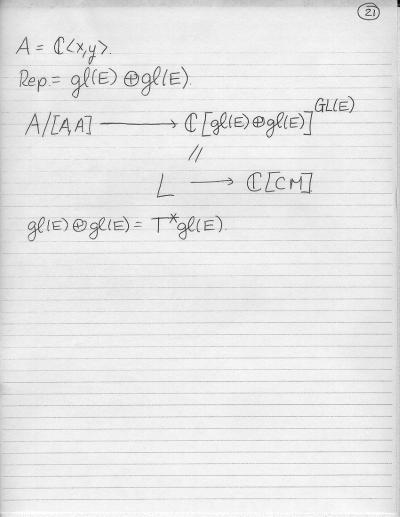 21
A = ℂ<x,y>.
Rep. = gl(E) ⊕ gl(E).
A/[A,A] ⟶ ℂ[gl(E)⊕gl(E)]^GL(E)
//
L ⟶ ℂ[CM]
gl(E)⊕gl(E) = T*gl(E).